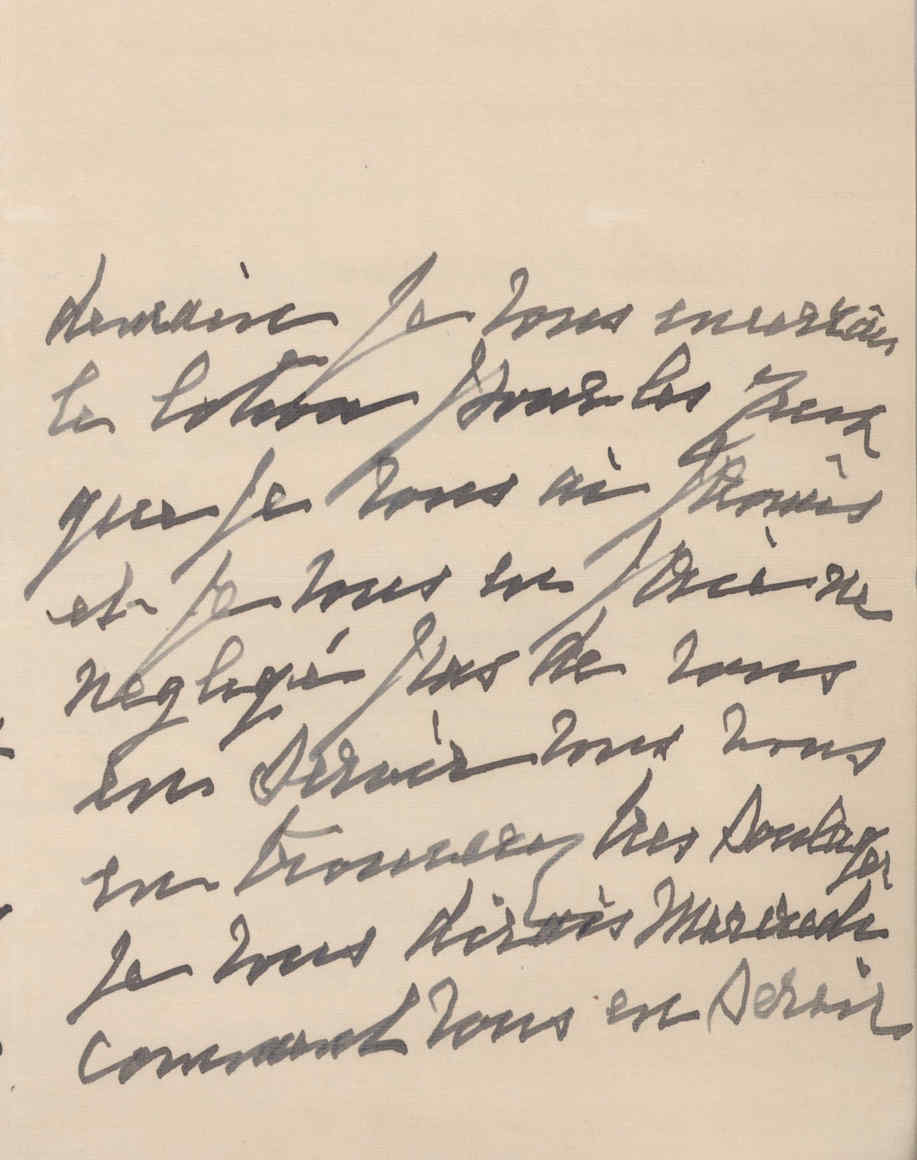 demain je vous enverrai
la lotion pour les yeux
que je vous ai promis
et je vous en prie ne
negligé pas de vous
en servir vous vous
en trouverez tres soulager
je vous dirais Mercredi
comment vous en servir